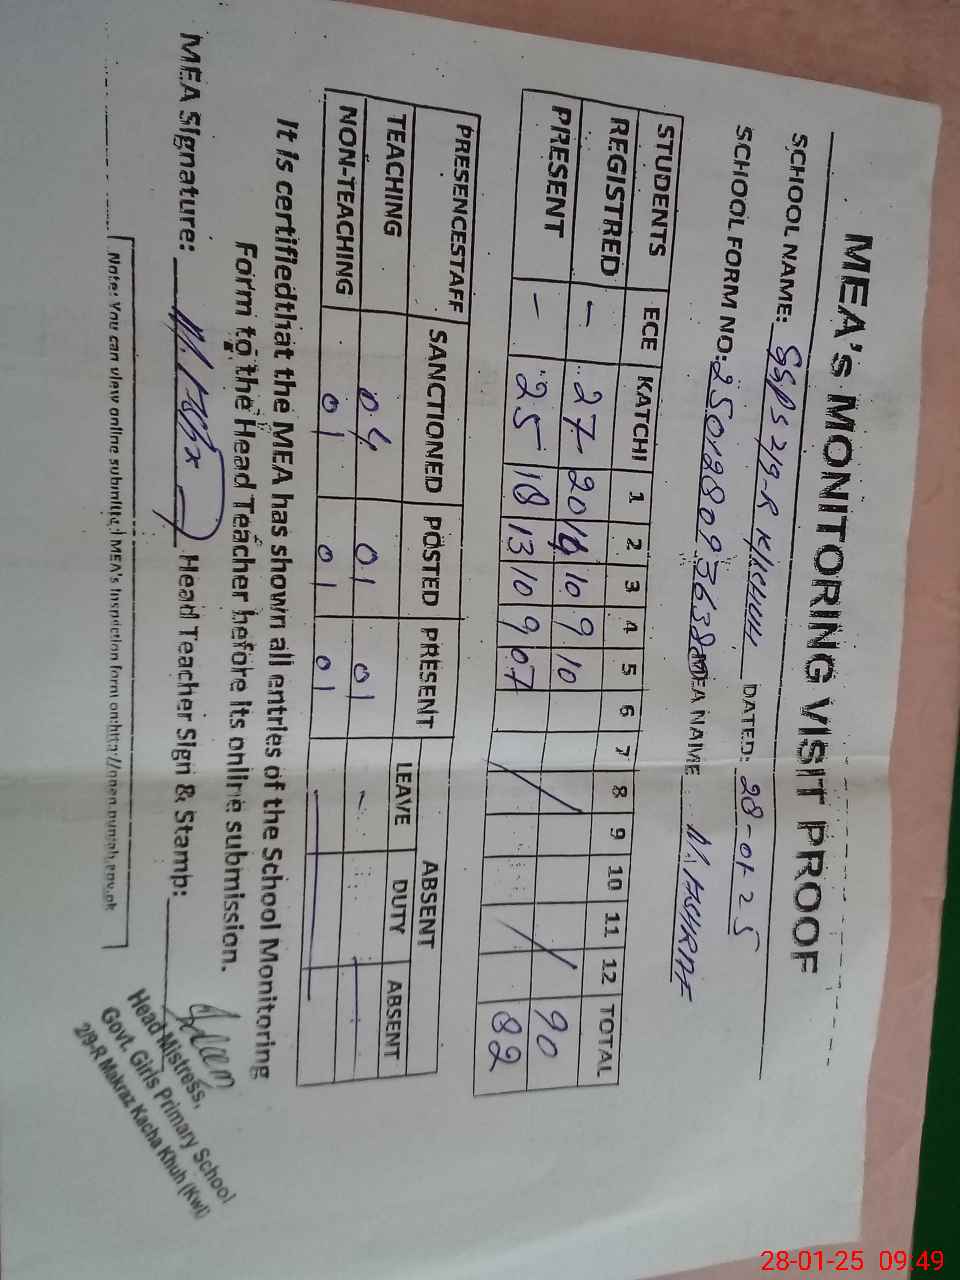 MEA's MONITORING VISIT PROOF
SCHOOL NAME: GGPS 2/9-R K/KHUH DATED: 28-01-25
SCHOOL FORM NO: MEA NAME M. ASHRAF
STUDENTS ECE KATCHI 1 2 3 4 5 6 7 8 9 10 11 12 TOTAL
REGISTRED - 27 20 14 10 9 10 90
PRESENT - 25 18 13 10 9 07 82
PRESENCESTAFF SANCTIONED POSTED PRESENT ABSENT
LEAVE DUTY ABSENT
TEACHING 04 01 01 -
NON-TEACHING 01 01 01
It is certifiedthat the MEA has shown all entries of the School Monitoring
Form to the Head Teacher before its online submission.
MEA Signature: Head Teacher Sign & Stamp:
Head Mistress,
Govt. Girls Primary School
2/9-R Makraz Kacha Khuh (Kwl)
Note: You can view online submitted MEA's Inspection form on:http://open.punjab.gov.pk
28-01-25 09:49